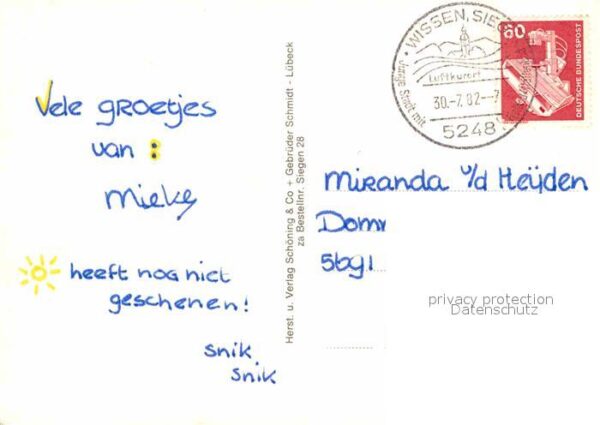 Vele groetjes
van :
Mieke
heeft nog niet
geschenen!
snik
snik
Herst. u. Verlag Schöning & Co + Gebrüder Schmidt - Lübeck
za Bestellnr. Siegen 28
WISSEN, SIEG
Luftkurort
30.-7.82--7
5248
Junge Stadt mit
60
DEUTSCHE BUNDESPOST
Miranda v/d Heijden
Domm
5691
privacy protection
Datenschutz